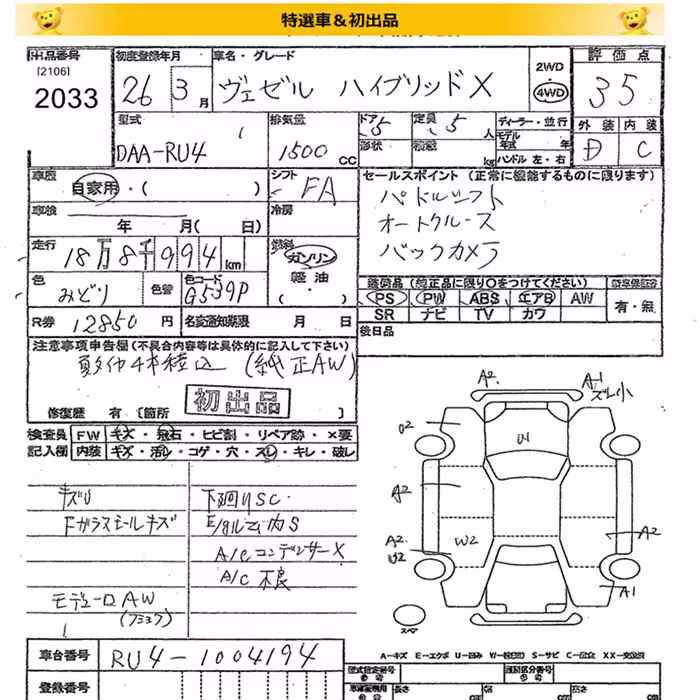 特選車&初出品
出品番号
[2106]
2033
初度登録年月
26 3月
車名・グレード
ヴェゼル ハイブリッドX
2WD
・
4WD
評価点
3.5
型式
DAA-RU4
排気量
1500 CC
ドア 5
形状
定員 5 人
積載 kg
ディーラー・並行
モデル
年式 年
ハンドル 左・右
外装 内装
D C
車歴
自家用・( )
シフト
FA
車検
年 月( 日)
冷房
セールスポイント (正常に機能するものに限ります)
パドルシフト
オートクルーズ
バックカメラ
走行
18万8千994km
燃料
ガソリン
軽油
( ・ )
色
みどり
色替
色コード
G539P
純正品 (純正品に限り○をつけてください)
PS PW ABS エアB AW
SR ナビ TV カワ
新車保証書
有・無
R券 12850円
名変通知期限 月 日
後日品
注意事項申告欄(不具合内容等は具体的に記入して下さい)
夏タイヤ4本積込 (純正AW)
初出品
修復歴 有 [箇所 ]
検査員 FW キズ・飛石・ヒビ割・リペア跡・×要
記入欄 内装 キズ・汚レ・コゲ・穴・スレ・キレ・破レ
キズU
Fガラスモールキズ
モデューロAW
下廻りSC
A/Cコンデンサー×
A/C不良
A2
A1
ズレ小
U2
U1
A2
A2
U2
W2
A2
A1
スペア
A-キズ E-エクボ U-凹み W-(波凹) S-サビ C-腐食 XX-交換済
車台番号 RU4-1004194
登録番号
型式指定番号
参考
類別区分番号
参考
長さ
幅
高さ